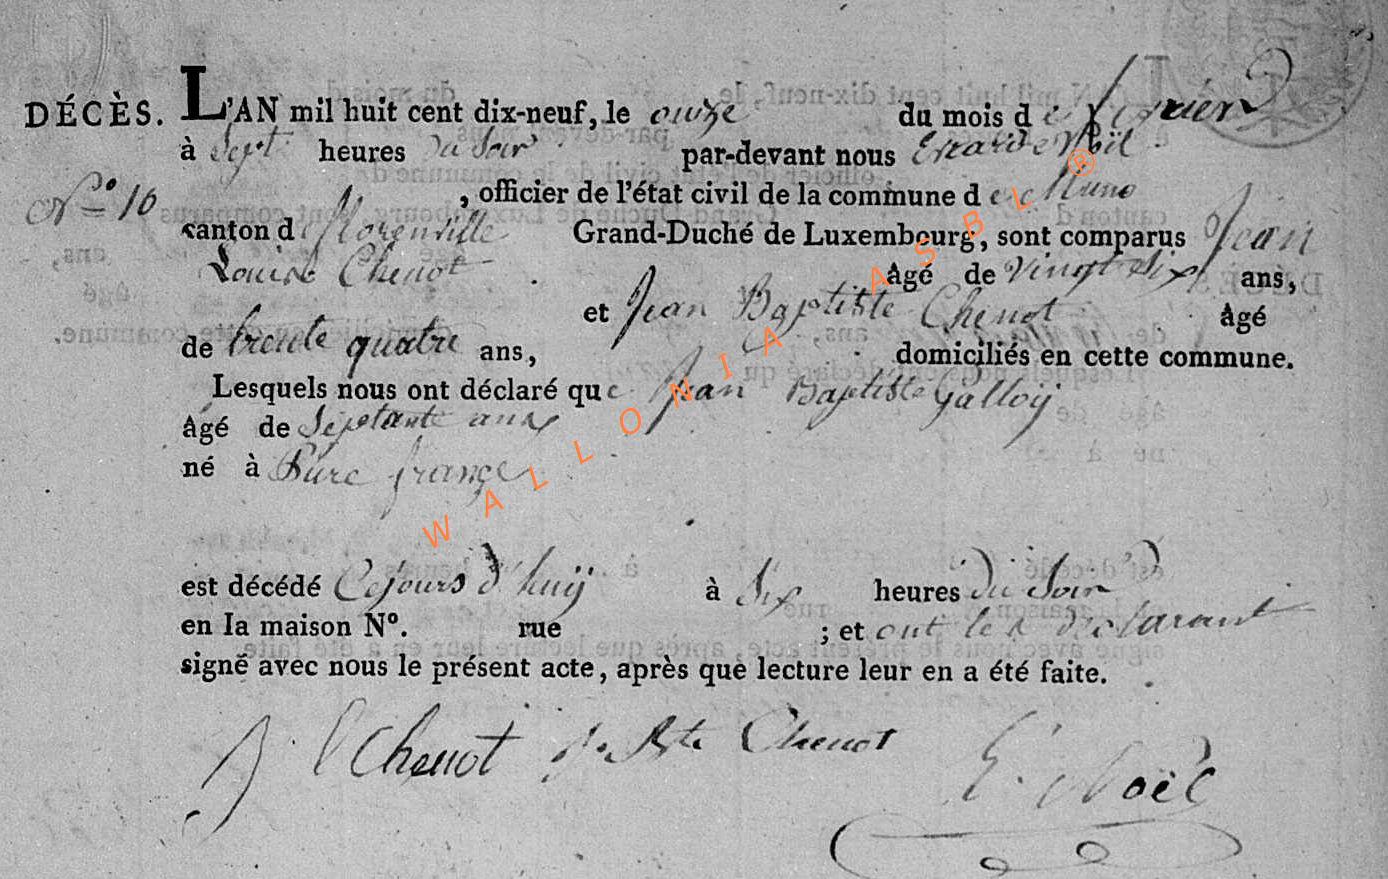 DÉCÈS. L'AN mil huit cent dix-neuf, le onze du mois de fevrier
à Sept heures du Soir par-devant nous Erard Noël
N.° 10 , officier de l'état civil de la commune de Muno
canton de florenville Grand-Duché de Luxembourg, sont comparus Jean
Louis Chenot âgé de vingt Six ans,
et Jean Baptiste Chenot âgé
de trente quatre ans, domiciliés en cette commune.
Lesquels nous ont déclaré que Jean Baptiste Galloÿ
âgé de Septante ans
né à Pure françe
est décédé Cejours d'huÿ à Six heures Du Soir
en la maison N°. rue ; et ont les declarant
signé avec nous le présent acte, après que lecture leur en a été faite.
J. l Chenot J. Bte Chenot E. Noël
WALLONIA ASBL ®